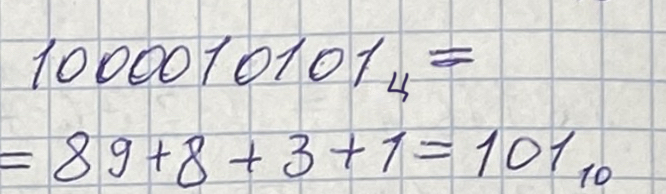 1000010101ц =
= 89 + 8 + 3 + 1 = 101₁₀